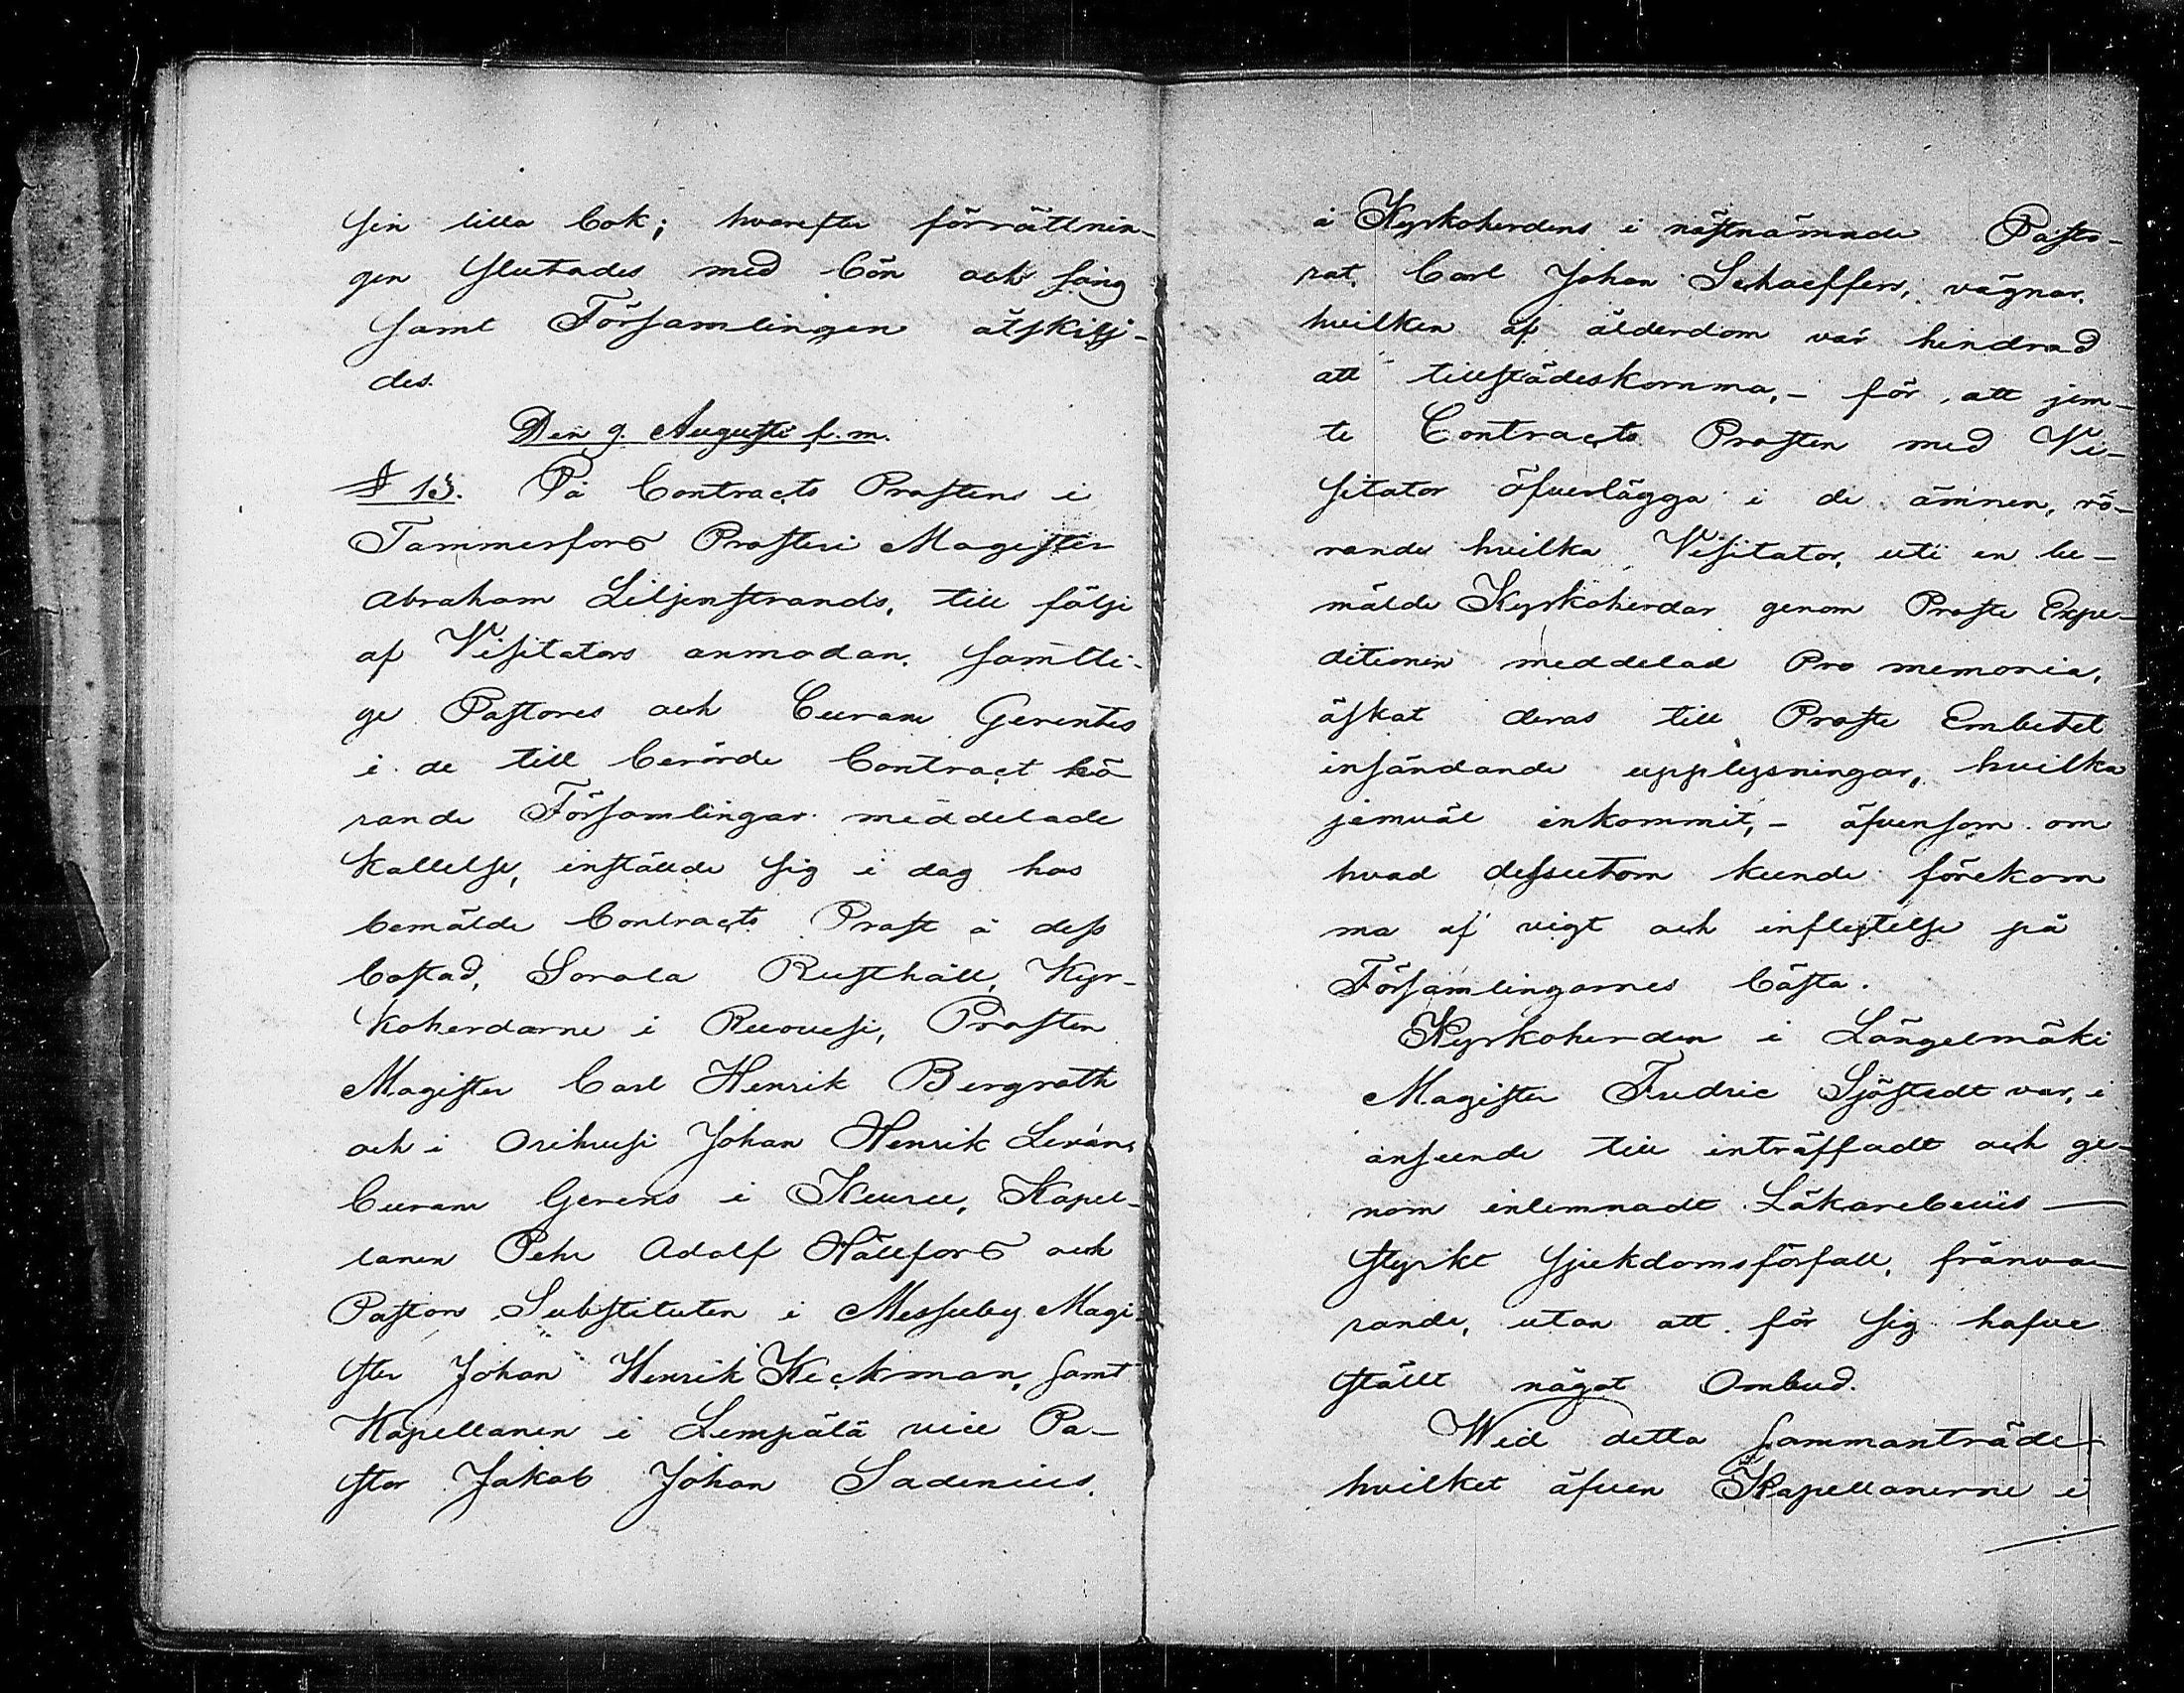 sin lilla bok; hvarefter förrättnin-
gen slutades med bön och sång
samt Församlingen åtskilj-
des.
Den 9. Augusti f.m.
§ 13. På Contracts Prostens i
Tammerfors Prosteri Magister
Abraham Liljenstrands, till följe
af Visitators anmodan, samtli-
ge Pastores och Curam Gerentes
i de till berörde Contract hö
rande Församlingar meddelade
kallelse, instälde sig i dag hos
bemälde Contracts Prost å dess
bostad, Sorola Rusthåll, Kyr-
koherdarne i Ruovesi, Prosten
Magister Carl Henrik Bergroth
och i Orihvesi Johan Henrik Levan,
Curam Gerens i Keuru, Kapel-
lanen Pehr Adolf Hällfors och
Pastors Substituten i Messuby Magi-
ster Johan Henrik Keckman, samt
Kapellanen i Lempälä vice Pa-
stor Jakob Johan Sadenius,
å Kyrkoherdens i nästnämnde Pasto-
rat, Carl Johan Schaeffers, vägnar,
hvilken af ålderdom var hindrad
att tillstädeskomma, – för att jem-
te Contracts Prosten med Vi-
sitator öfverlägga i de ämnen, rö-
rande hvilka Visitator, uti en be-
mälde Kyrkoherdar genom Proste Expe-
ditionen meddelad Pro memoria,
äskat deras till Proste Embetet
insändande upplysningar, hvilka
jemväl inkommit, – äfvensom om
hvad dessutom kunde förekom
ma af vigt och inflytelse på
Församlingarnes bästa.
Kyrkoherden i Längelmäki
Magister Fredric Sjöstedt var, i
anseende till inträffadt och ge-
nom inlemnadt Läkarebevis –
styrkt sjukdomsförfall, frånva-
rande, utan att för sig hafva
ställt något Ombud.
Wid detta sammanträde
hvilket äfven Kapellanerne i